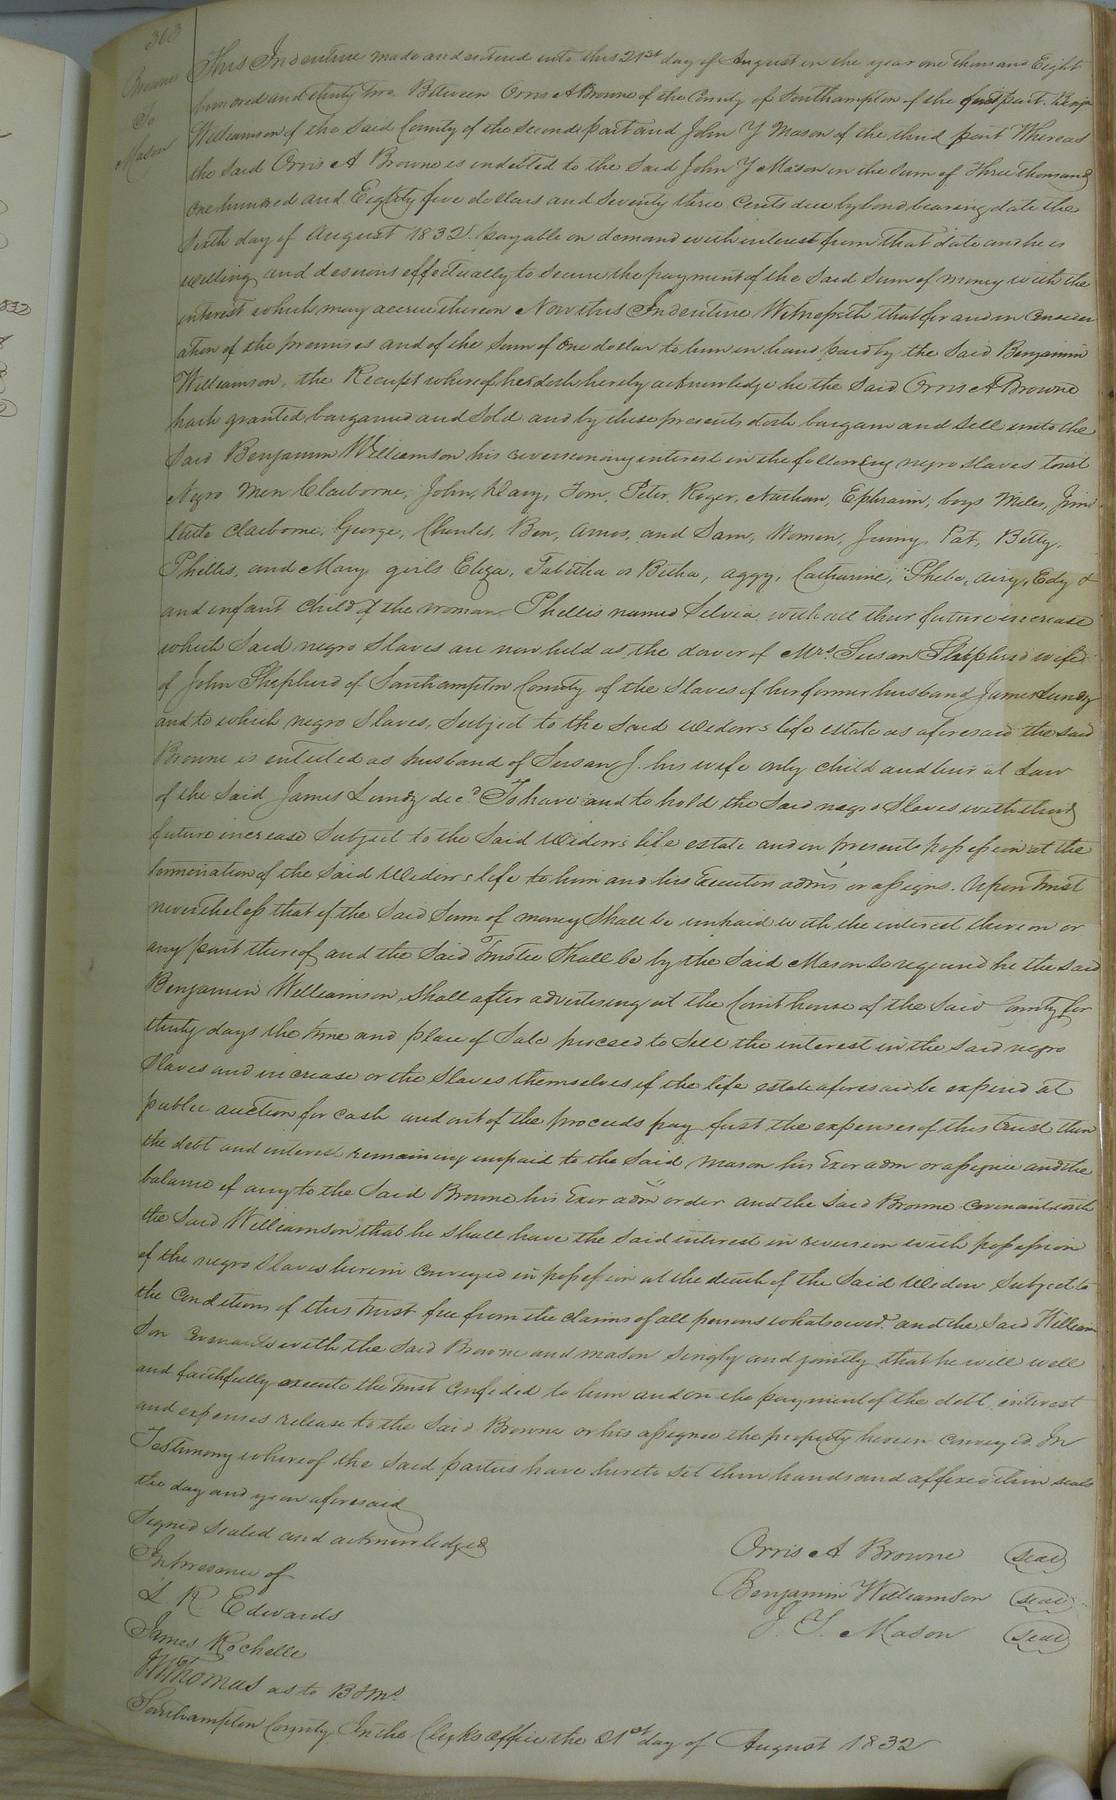 303
Browne
To
Mason
This Indenture made and entered into this 21st day of August in the year one thousand Eight
hundred and thirty two Between Orris A Browne of the County of Southampton of the first part. Benja
Williamson of the Said County of the second part and John Y Mason of the third part Whereas
the Said Orris A Browne is indebted to the Said John Y Mason in the Sum of Three thousand
One hundred and Eighty five dollars and Seventy three Cents due by bond bearing date the
Sixth day of August 1832. payable on demand with interest from that date and he is
willing and desirous effectually to secure the payment of the Said Sum of money with the
interest which may accrue thereon Now this Indenture Witnesseth that for and in Consider
ation of the premises and of the Sum of One dollar to him in hand paid by the Said Benjamin
Williamson, the Receipt whereof he doth hereby acknowledge he the Said Orris A Browne
hath granted bargained and Sold and by these presents doth bargain and Sell unto the
Said Benjamin Williamson his reversionary interest in the following negro Slaves towit
Negro Men Claiborne, John, Davy, Tom, Peter, Roger, Nathan, Ephraim, boys Miles, Jim
little Claiborne, George, Charles, Ben, Amos, and Sam, Women, Jenny, Pat, Betty,
Phillis, and Mary girls Eliza, Tabitha or Bitha, Aggy, Catharine, Phebe, Airy, Edy &
and infant Child of the woman Phillis named Silvia with all their future increase
which Said negro Slaves are now held as the dower of Mrs Susan Shepherd wife
of John Shepherd of Southampton County of the Slaves of her former husband James Lundy
and to which negro Slaves, Subject to the Said Widows life estate as aforesaid the said
Browne is entitled as husband of Susan J. his wife only Child and heir at Law
of the Said James Lundy decd To have and to hold the Said negro Slaves with their
future increase Subject to the Said Widows life estate and in present possession at the
termination of the Said Widows life to him and his Executors admrs or assigns. Upon trust
nevertheless that if the Said Sum of money Shall be unpaid with the interest thereon or
any part thereof and the Said Trustee Shall be by the Said Mason So required he the said
Benjamin Williamson Shall after advertising at the Court house of the Said County for
thirty days the time and place of Sale proceed to Sell the interest in the Said negro
Slaves and increase or the Slaves themselves if the life estate aforesaid be expired at
public auction for cash and out of the proceeds pay first the expenses of this trust then
the debt and interest remaining unpaid to the Said Mason his Exor adm or assignee and the
balance if any to the Said Browne his Exor adm order and the Said Browne Covenants with
the Said Williamson that he Shall have the Said interest in reversion with possession
of the negro Slaves herein Conveyed in possession at the death of the Said Widow Subject to
the Conditions of this trust free from the claims of all persons whatsoever and the Said William
son Covenants with the Said Browne and Mason Singly and jointly that he will well
and faithfully execute the trust Confided to him and on the payment of the debt interest
and expenses release to the Said Browne or his assignee the property herein Conveyed. In
Testimony whereof the Said parties have hereto Set their hands and affixed their seals
the day and year aforesaid
Signed Sealed and acknowledged
In presence of
L R Edwards
James Rochelle
Thomas as to B & M.
Orris A Browne Seal
Benjamin Williamson Seal
J. Y. Mason Seal
Southampton County In the Clerks Office the 21st day of August 1832